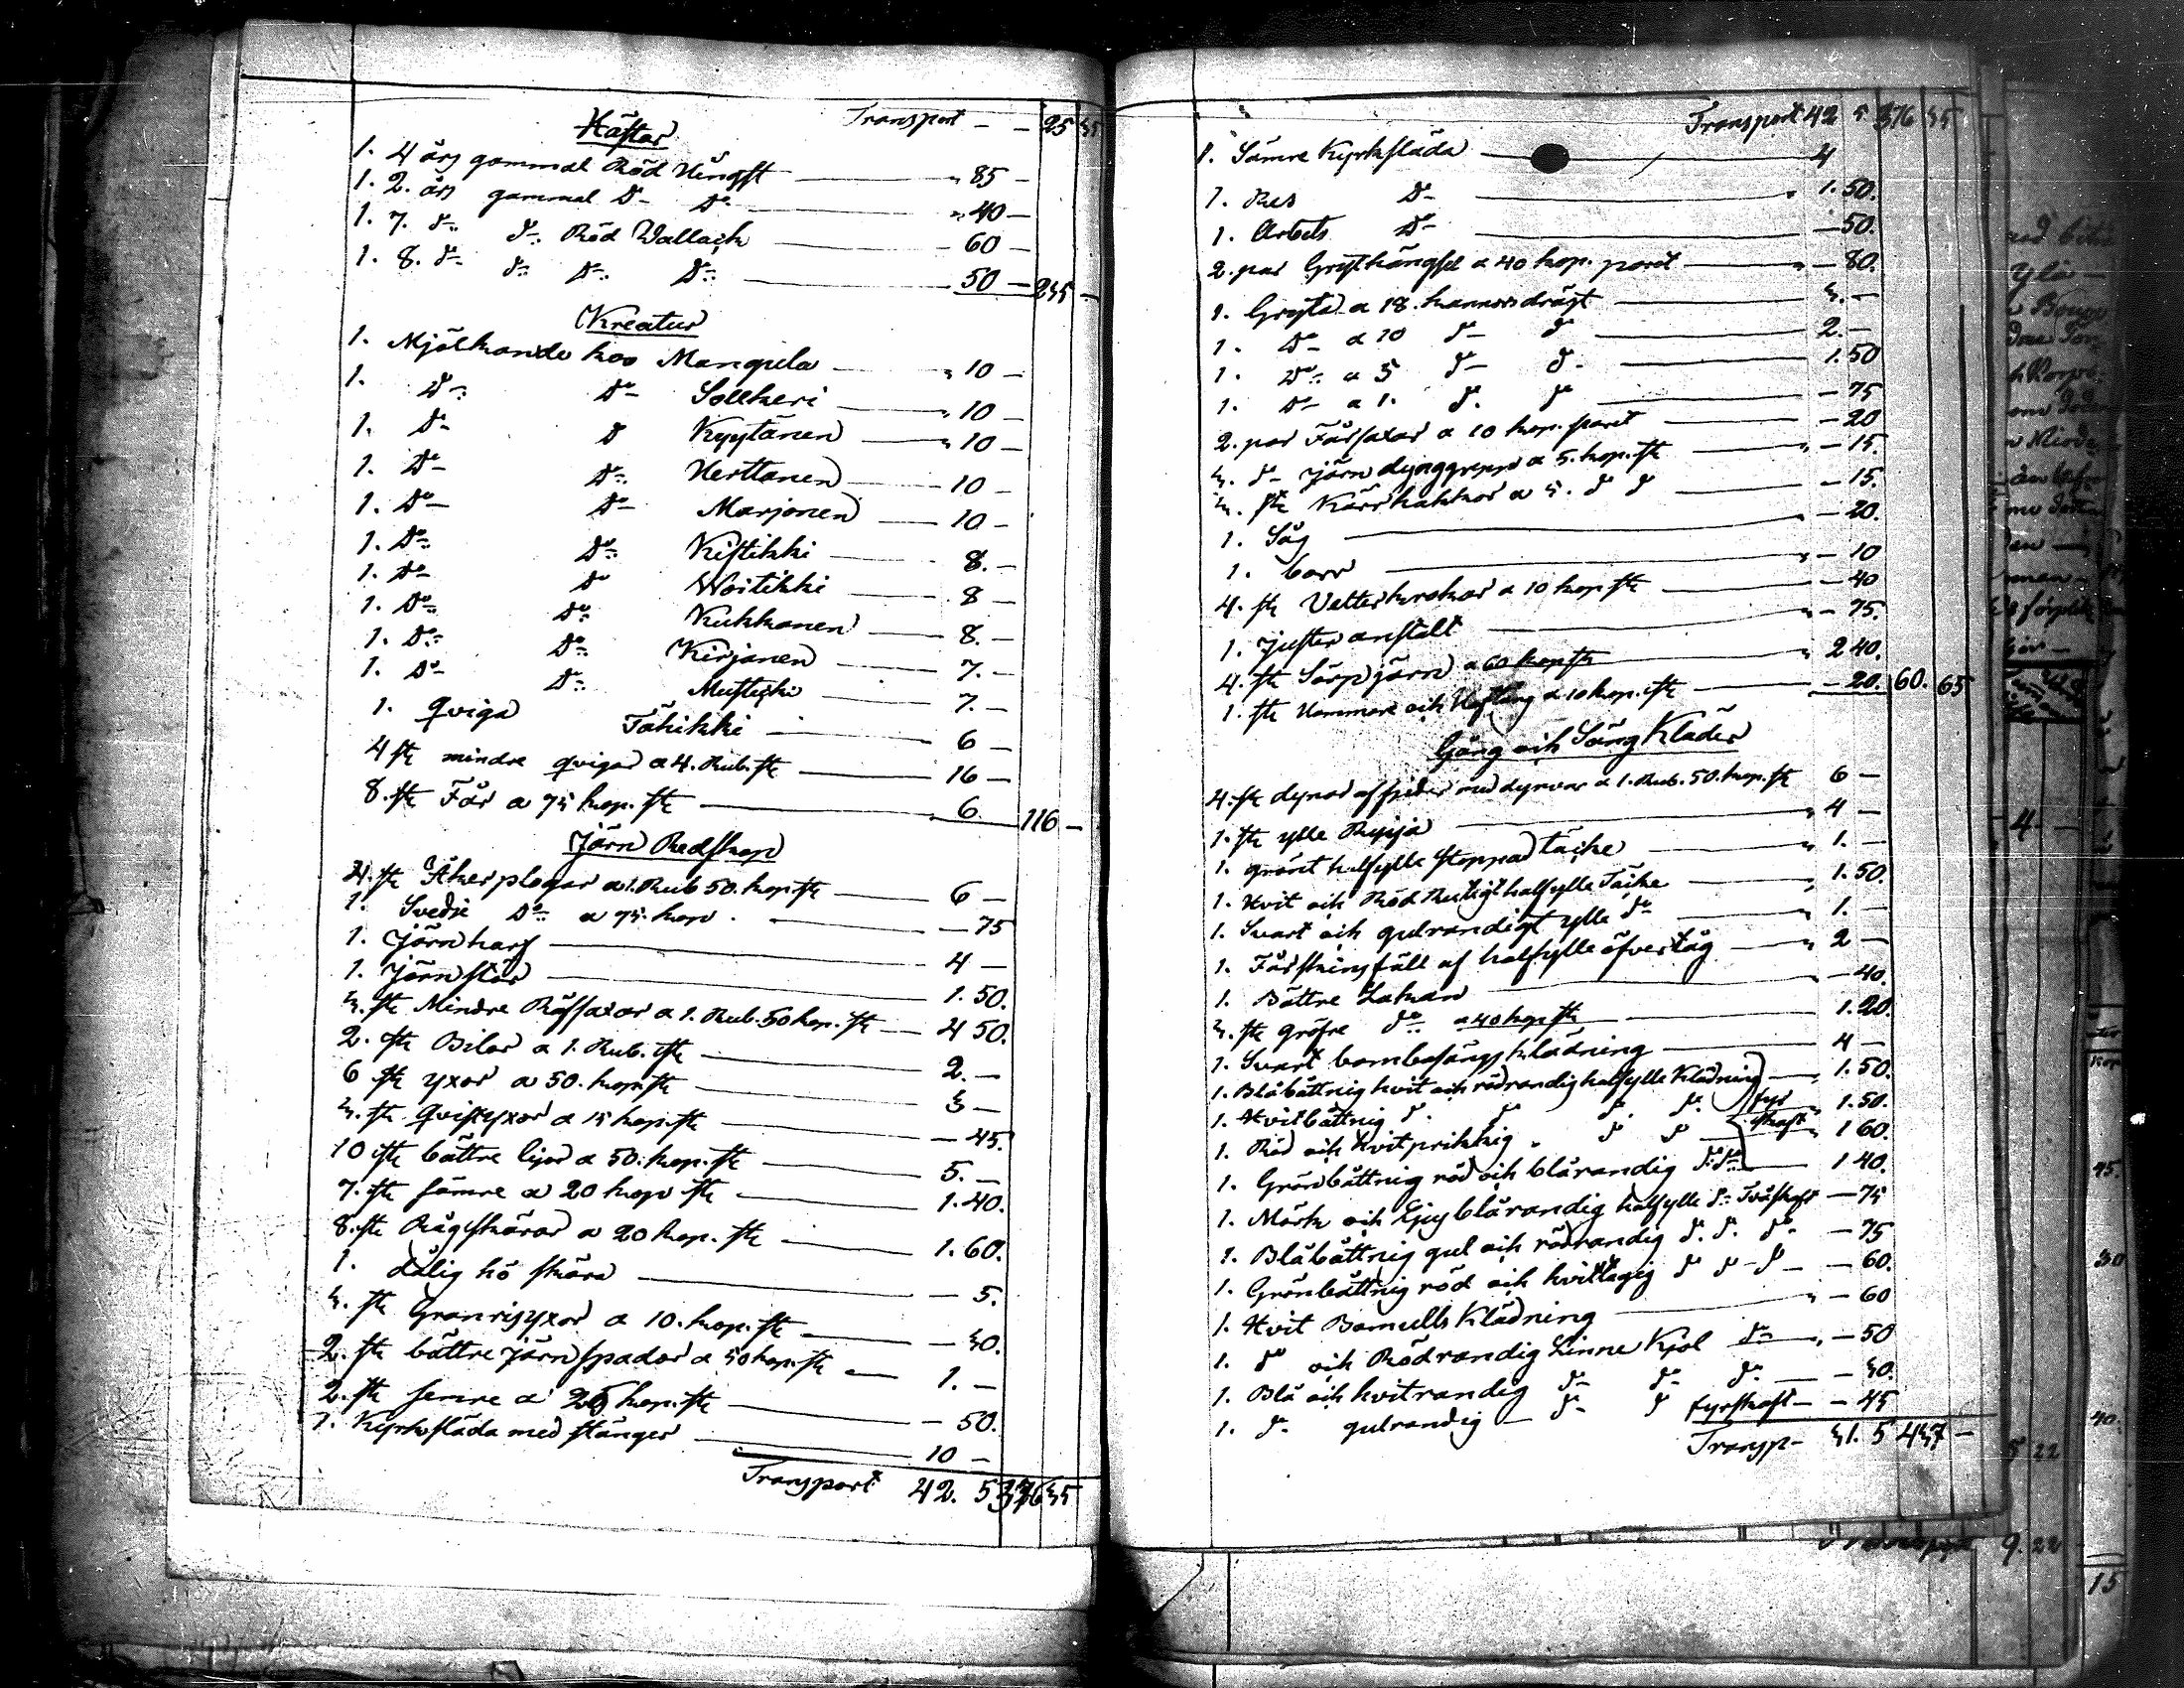 Transport - - 25 35
Hästar
1. 4 års gammal Röd Hingst - " 85 -
1. 2. års gammal Do Do - " 40 -
1. 7. do do Röd Wallach - 60 -
1. 8. do do Do Do - 50 - 235 -
Kreatur
1. Mjölkande koo Mangela - " 10 -
1. Do Do Sollkeri - " 10 -
1. Do D Kyytänen - " 10 -
1. Do Do Herttanen - 10 -
1. Do Do Marjonen - 10 -
1. Do Do Kistikki - 8. -
1. Do Do Woitikki - 8 -
1. Do Do Kukkanen - 8. -
1. Do Do Kirjanen - 7. -
1. Do Do Mustikki - 7. -
1. qviga Tähikki - 6 -
4 st mindre qvigor a 4. Rub. st - 16 -
8. st Får a 75 kop. st - 6. 116 -
Järn Redskap
4. st Åkerplogar a 1. Rub 50. kop. st - 6 -
1. Svedje Do a 75. kop. - 75
1. Järnharf - 4 -
1. Järnstör - 1. 50.
3. st Mindre Räfsaxar a 1. Rub. 50 kop. st - 4 50.
2. st Bilor a 1. Rub. st - 2. -
6 st yxor a 50. kop. st - 3 -
3. st qvistyxor a 15 kop. st - 45.
10 st bättre liјor a 50. kop. st - 5. -
7. st sämre a 20 kop st - 1. 40.
8. st Rågskäror a 20 kop. st - 1. 60.
1. dålig hö skära - 5.
3. st Granrisyxor a 10. kop. st - 30.
2. st bättre järnspador a 50 kop. st - 1. -
2. st semre a 25 kop. st - 50.
1. Kyrksläda med stänger - 10 -
Transport 42. 5 376 35
Transport 42 5 376 35
1. Sämre Kyrksläda - 4
1. Res Do - 1. 50.
1. Arbets Do - 50.
2. par Grythängsel a 40 kop. paret - 80.
1. Gryta a 18. kannors drägt - 3. -
1. Do a 10 do do - 2. -
1. Do a 5 do do - 1. 50
1. Do a 1. do do - 75
2. par Fårsaxar a 10 kop. paret - 20
3. do järn dynggrepp a 5. kop. st - 15.
3. st Kärrhakkor a 5. do do - 15.
1. Såg - 20.
1. borr - 10
4. st Vetterkrokar a 10 kop st - 40
1. juster anstalt - 75.
4. st Sörpjärn a 60 kop st - 2 40.
1. st Hammare och Hoftång a 10 kop. st - 20. 60. 65
Gång och Säng Kläder
4. st dynor af fjäder med dynvar a 1. Rub. 50. kop. st 6 -
1. st ylle Ryijä - " 4 -
1. grönt halfylle stoppad täcke - " 1. -
1. Hvit och Röd Rutigt halfylle Täcke - 1. 50.
1. Svart och gulrandigt ylle do - " 1. -
1. Fårskinsfäll af halfylle öfvertåg - " 2 -
1. Bättre Lakan - 40.
3. st gröfre do a 40 kop st - 1. 20.
1. Svart bombasängs klädning - 4 -
1. Blåbåttnig hvit och rödrandig halfylle Klädning - 1. 50.
1. Hvitbåttnig do do do do fyr - 1. 50.
1. Röd och Hvitprikkig - do do skaft - 1 60.
1. Grönbåttnig röd och blårandig do do - 1 40.
1. Mörk och ljusblårandig halfylle do Tvåskaft - 75
1. Blåbåttnig gul och rödrandig do do do - 75
1. Grönbåttnig röd och do do do - 60.
1. Hvit Bomulls Klädning - 60
1. do och Rödrandig Linne Kjol do - 50
1. Blå och hvitrandig do do do - 30.
1. do gulrandig - do do fyrskaft - 45
Transp - 31. 5 437 -